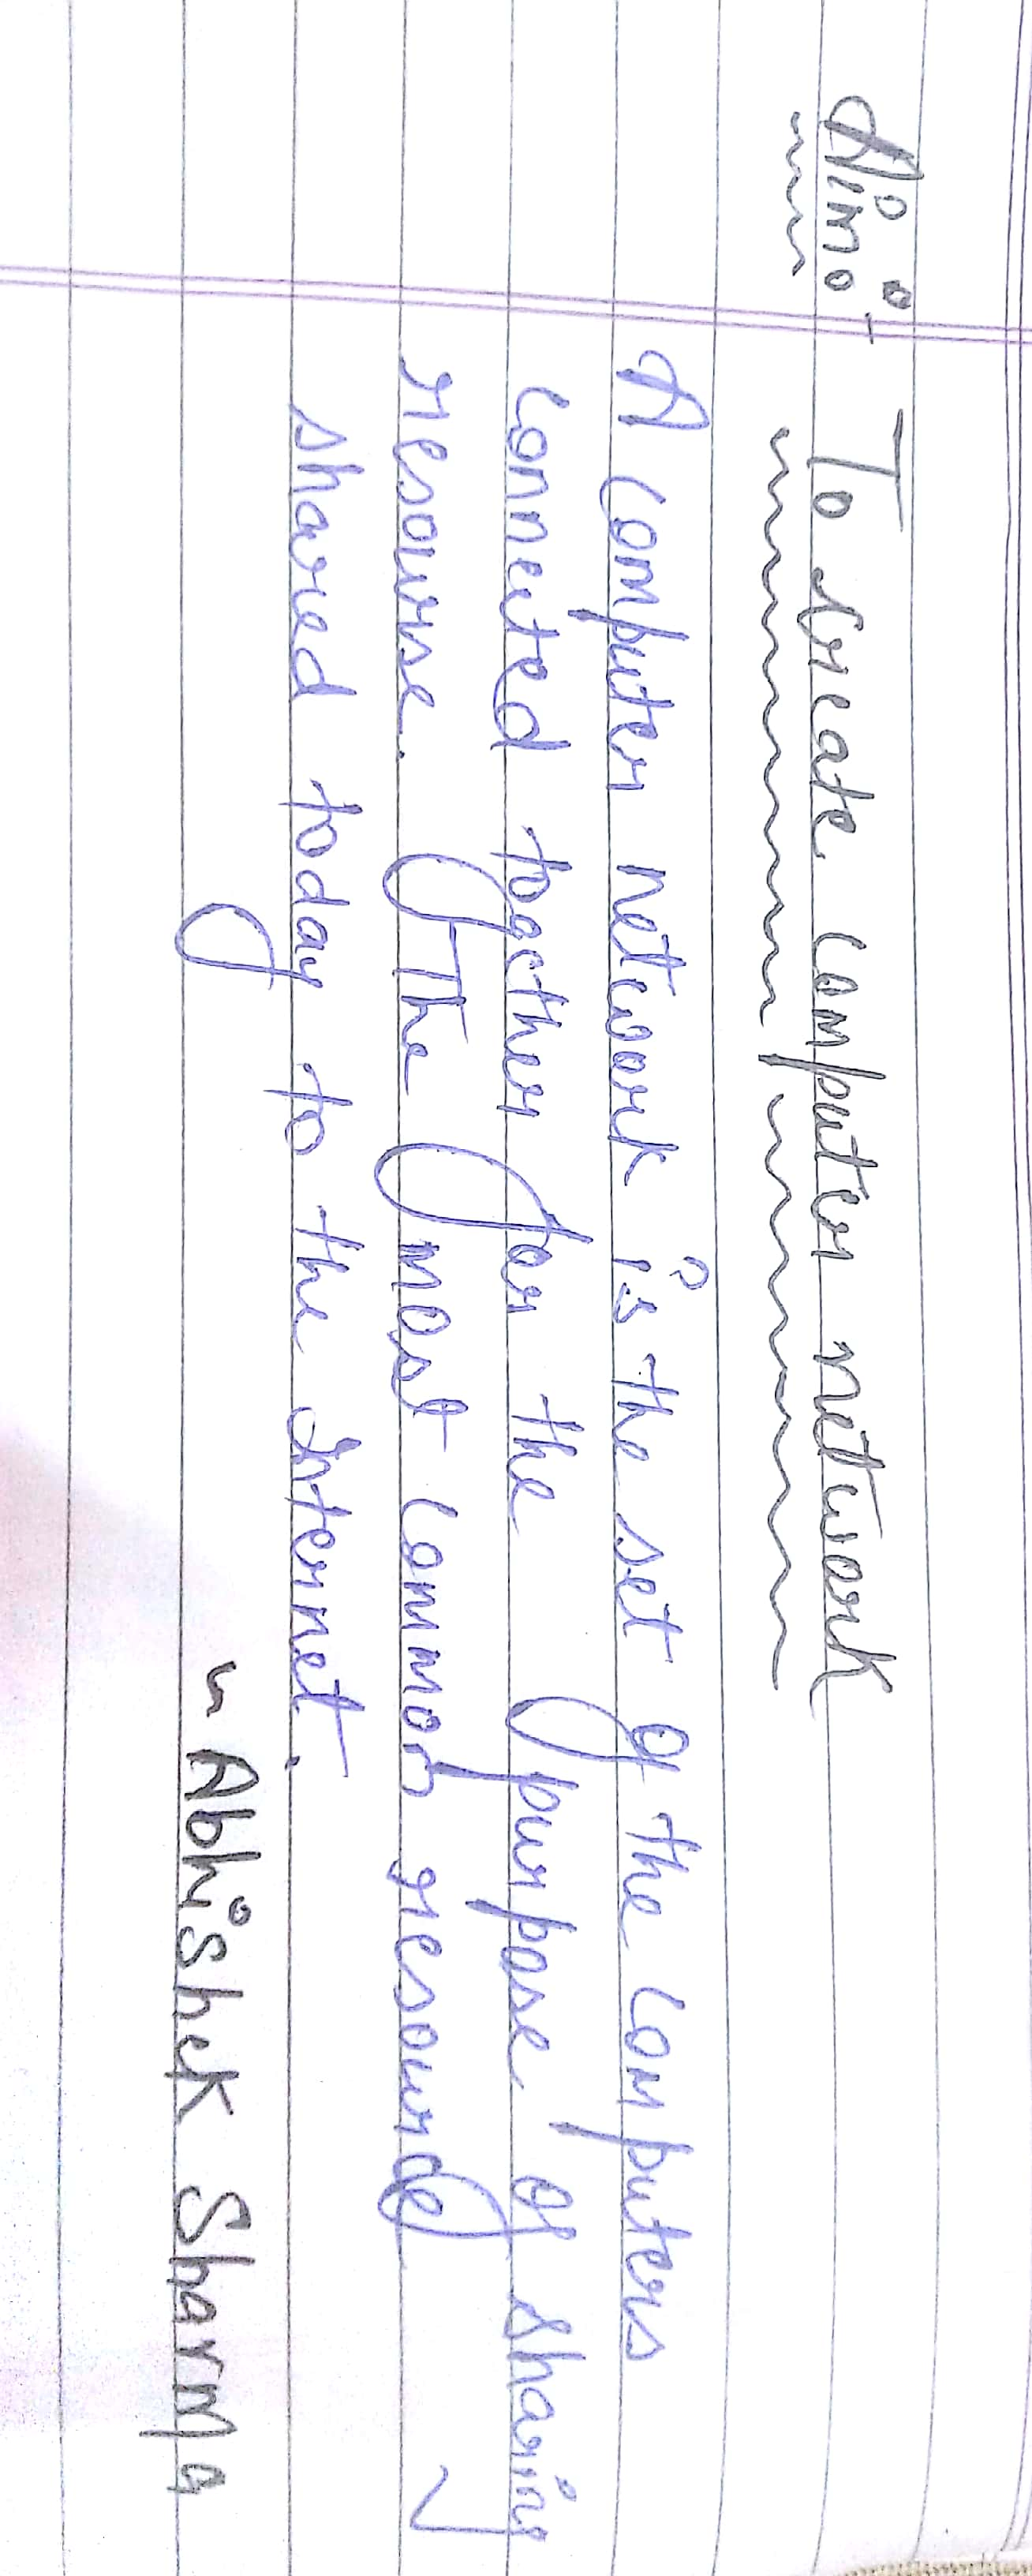 Aim :- To create computer network
A computer network is the set of the computers
connected together for the purpose of sharing
resourse. The most common resource
shared today to the Internet.
~ Abhishek Sharma